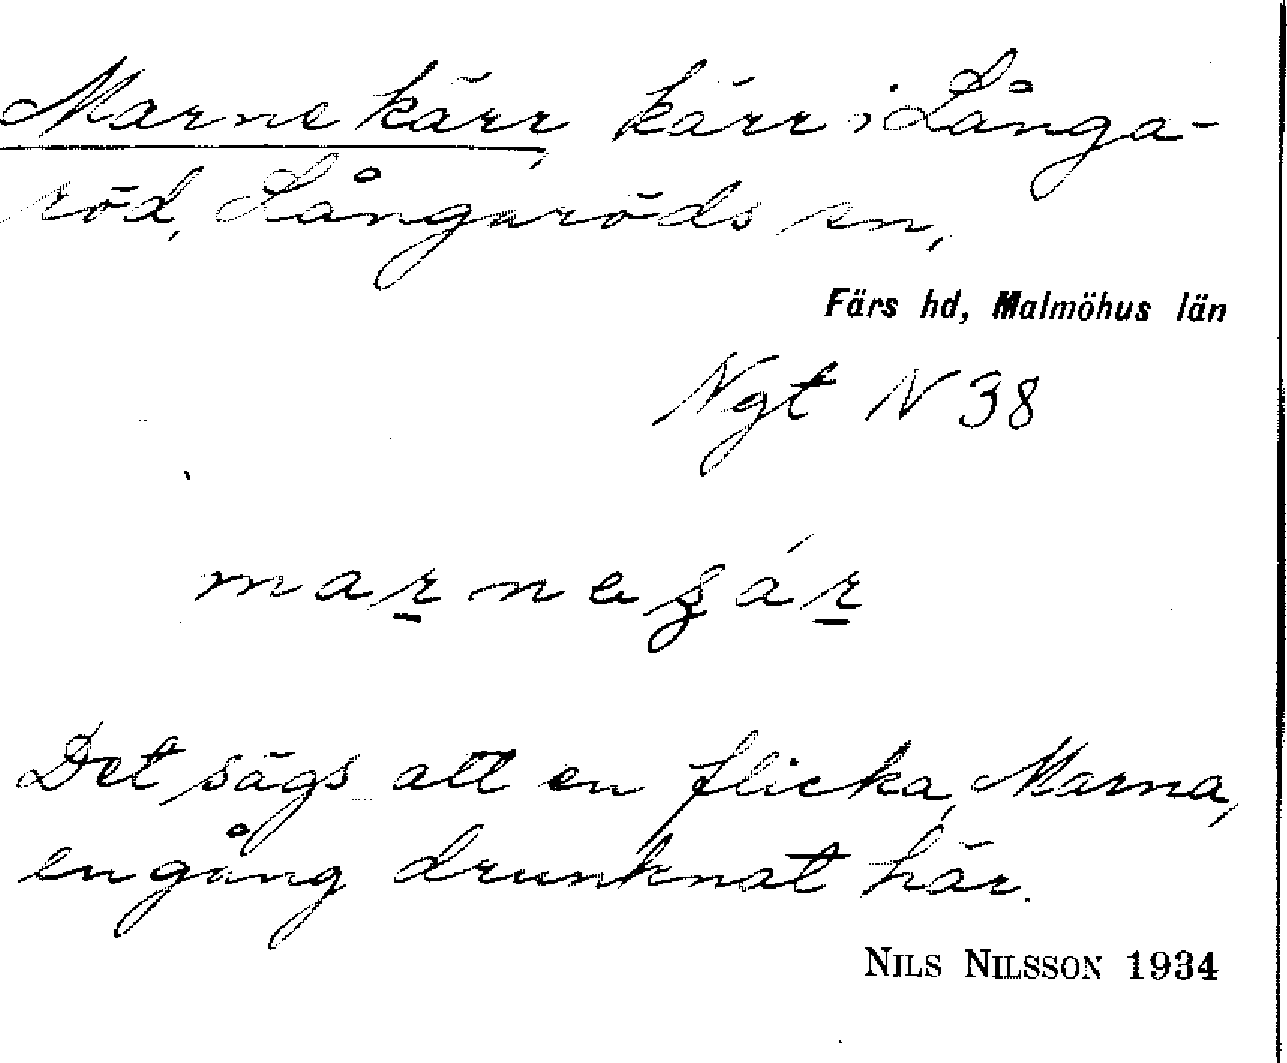 Marnekärr, kärr i Långa-
röd, Långaröds sn,
Färs hd, Malmöhus län
Ngt N 38
Det sägs att en flicka, Marna,
en gång drunknat här.
NILS NILSSON 1934